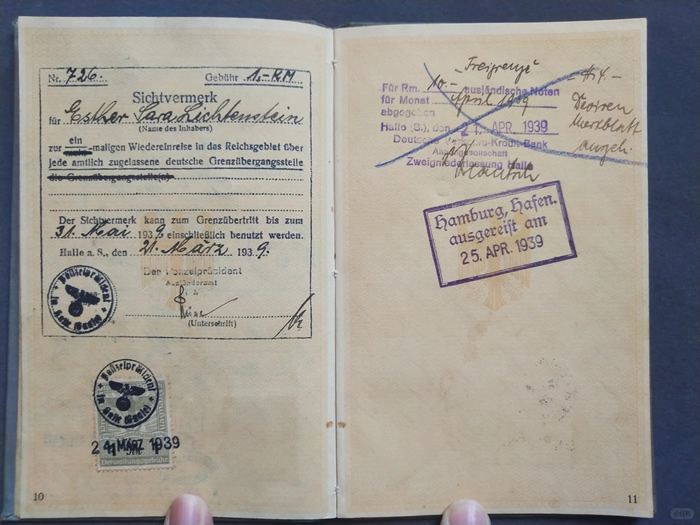 Nr. 726. Gebühr 1.-RM
Sichtvermerk
für Esther Sara Lichtenstein
(Name des Inhabers)
ein
zur -maligen Wiedereinreise in das Reichsgebiet über
jede amtlich zugelassene deutsche Grenzübergangsstelle
die Grenzübergangsstelle(n)
Der Sichtvermerk kann zum Grenzübertritt bis zum
31. Mai 1939. einschließlich benutzt werden.
Halle a. S., den 21. März 1939.
Der Polizeipräsident
(Unterschrift)
Polizeipräsident
in Halle (Saale)
Polizeipräsident
in Halle (Saale)
24. MÄRZ 1939
Verwaltungsgebühr
10
"Freigrenze"
Für Rm. 10- ausländische Noten
für Monat April 1939
abgegeben
Halle (S.), den 21. APR. 1939
Deutsche Kredit-Bank
Zweigniederlassung Halle
Devisen
Merkblatt
Hamburg, Hafen.
ausgereist am
25. APR. 1939
11